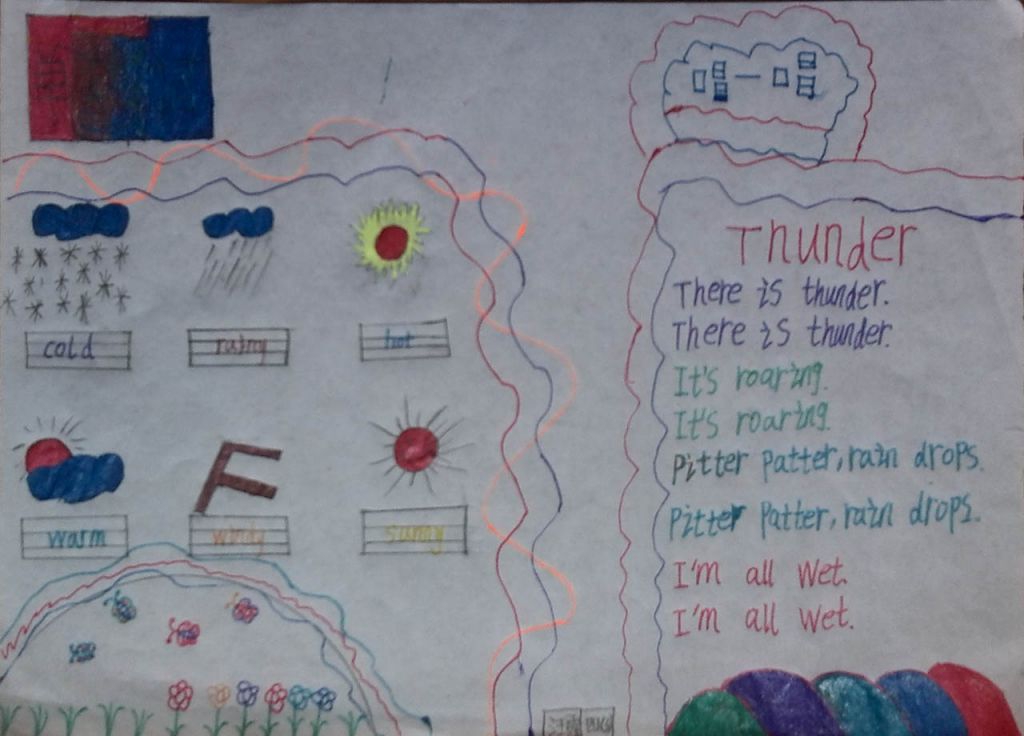 cold
rainy
hot
warm
windy
sunny
Thunder
There is thunder.
There is thunder.
It's roaring.
It's roaring.
Pitter Patter, rain drops.
Pitter Patter, rain drops.
I'm all wet.
I'm all wet.